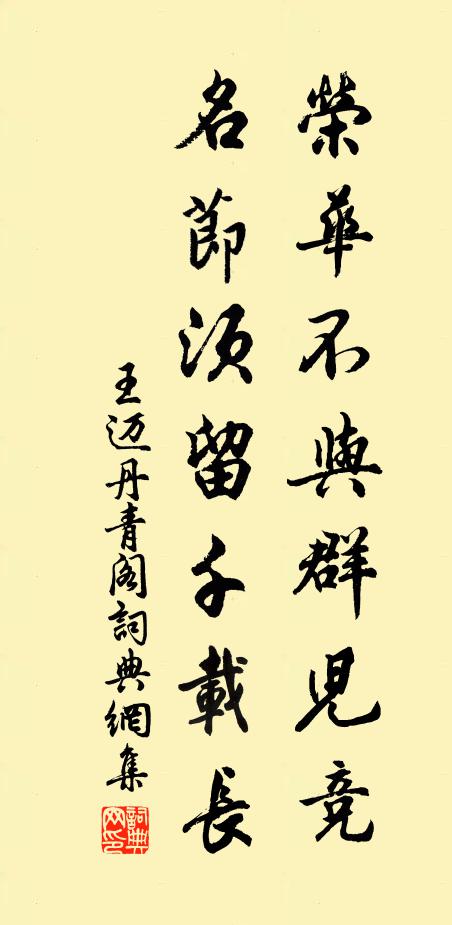 榮華不與群児竞
名節須留千載長
王迈丹青阁詞典網集
詞典网印